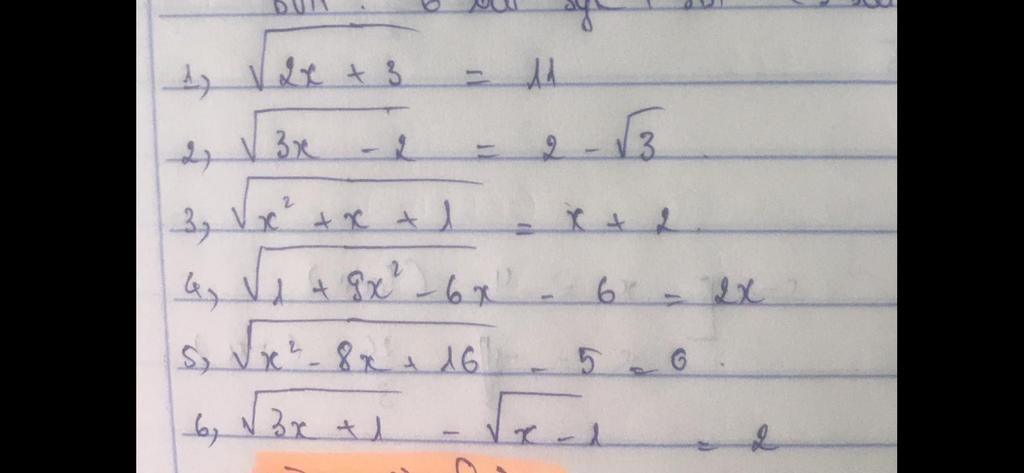 1, √(2x + 3) = 11
2, √(3x - 2) = 2 - √3
3, √(x² + x + 1) = x + 2
4, √(1 + 9x² - 6x) - 6 = 2x
5, √(x² - 8x + 16) - 5 = 0
6, √(3x + 1) - √(x - 1) = 2